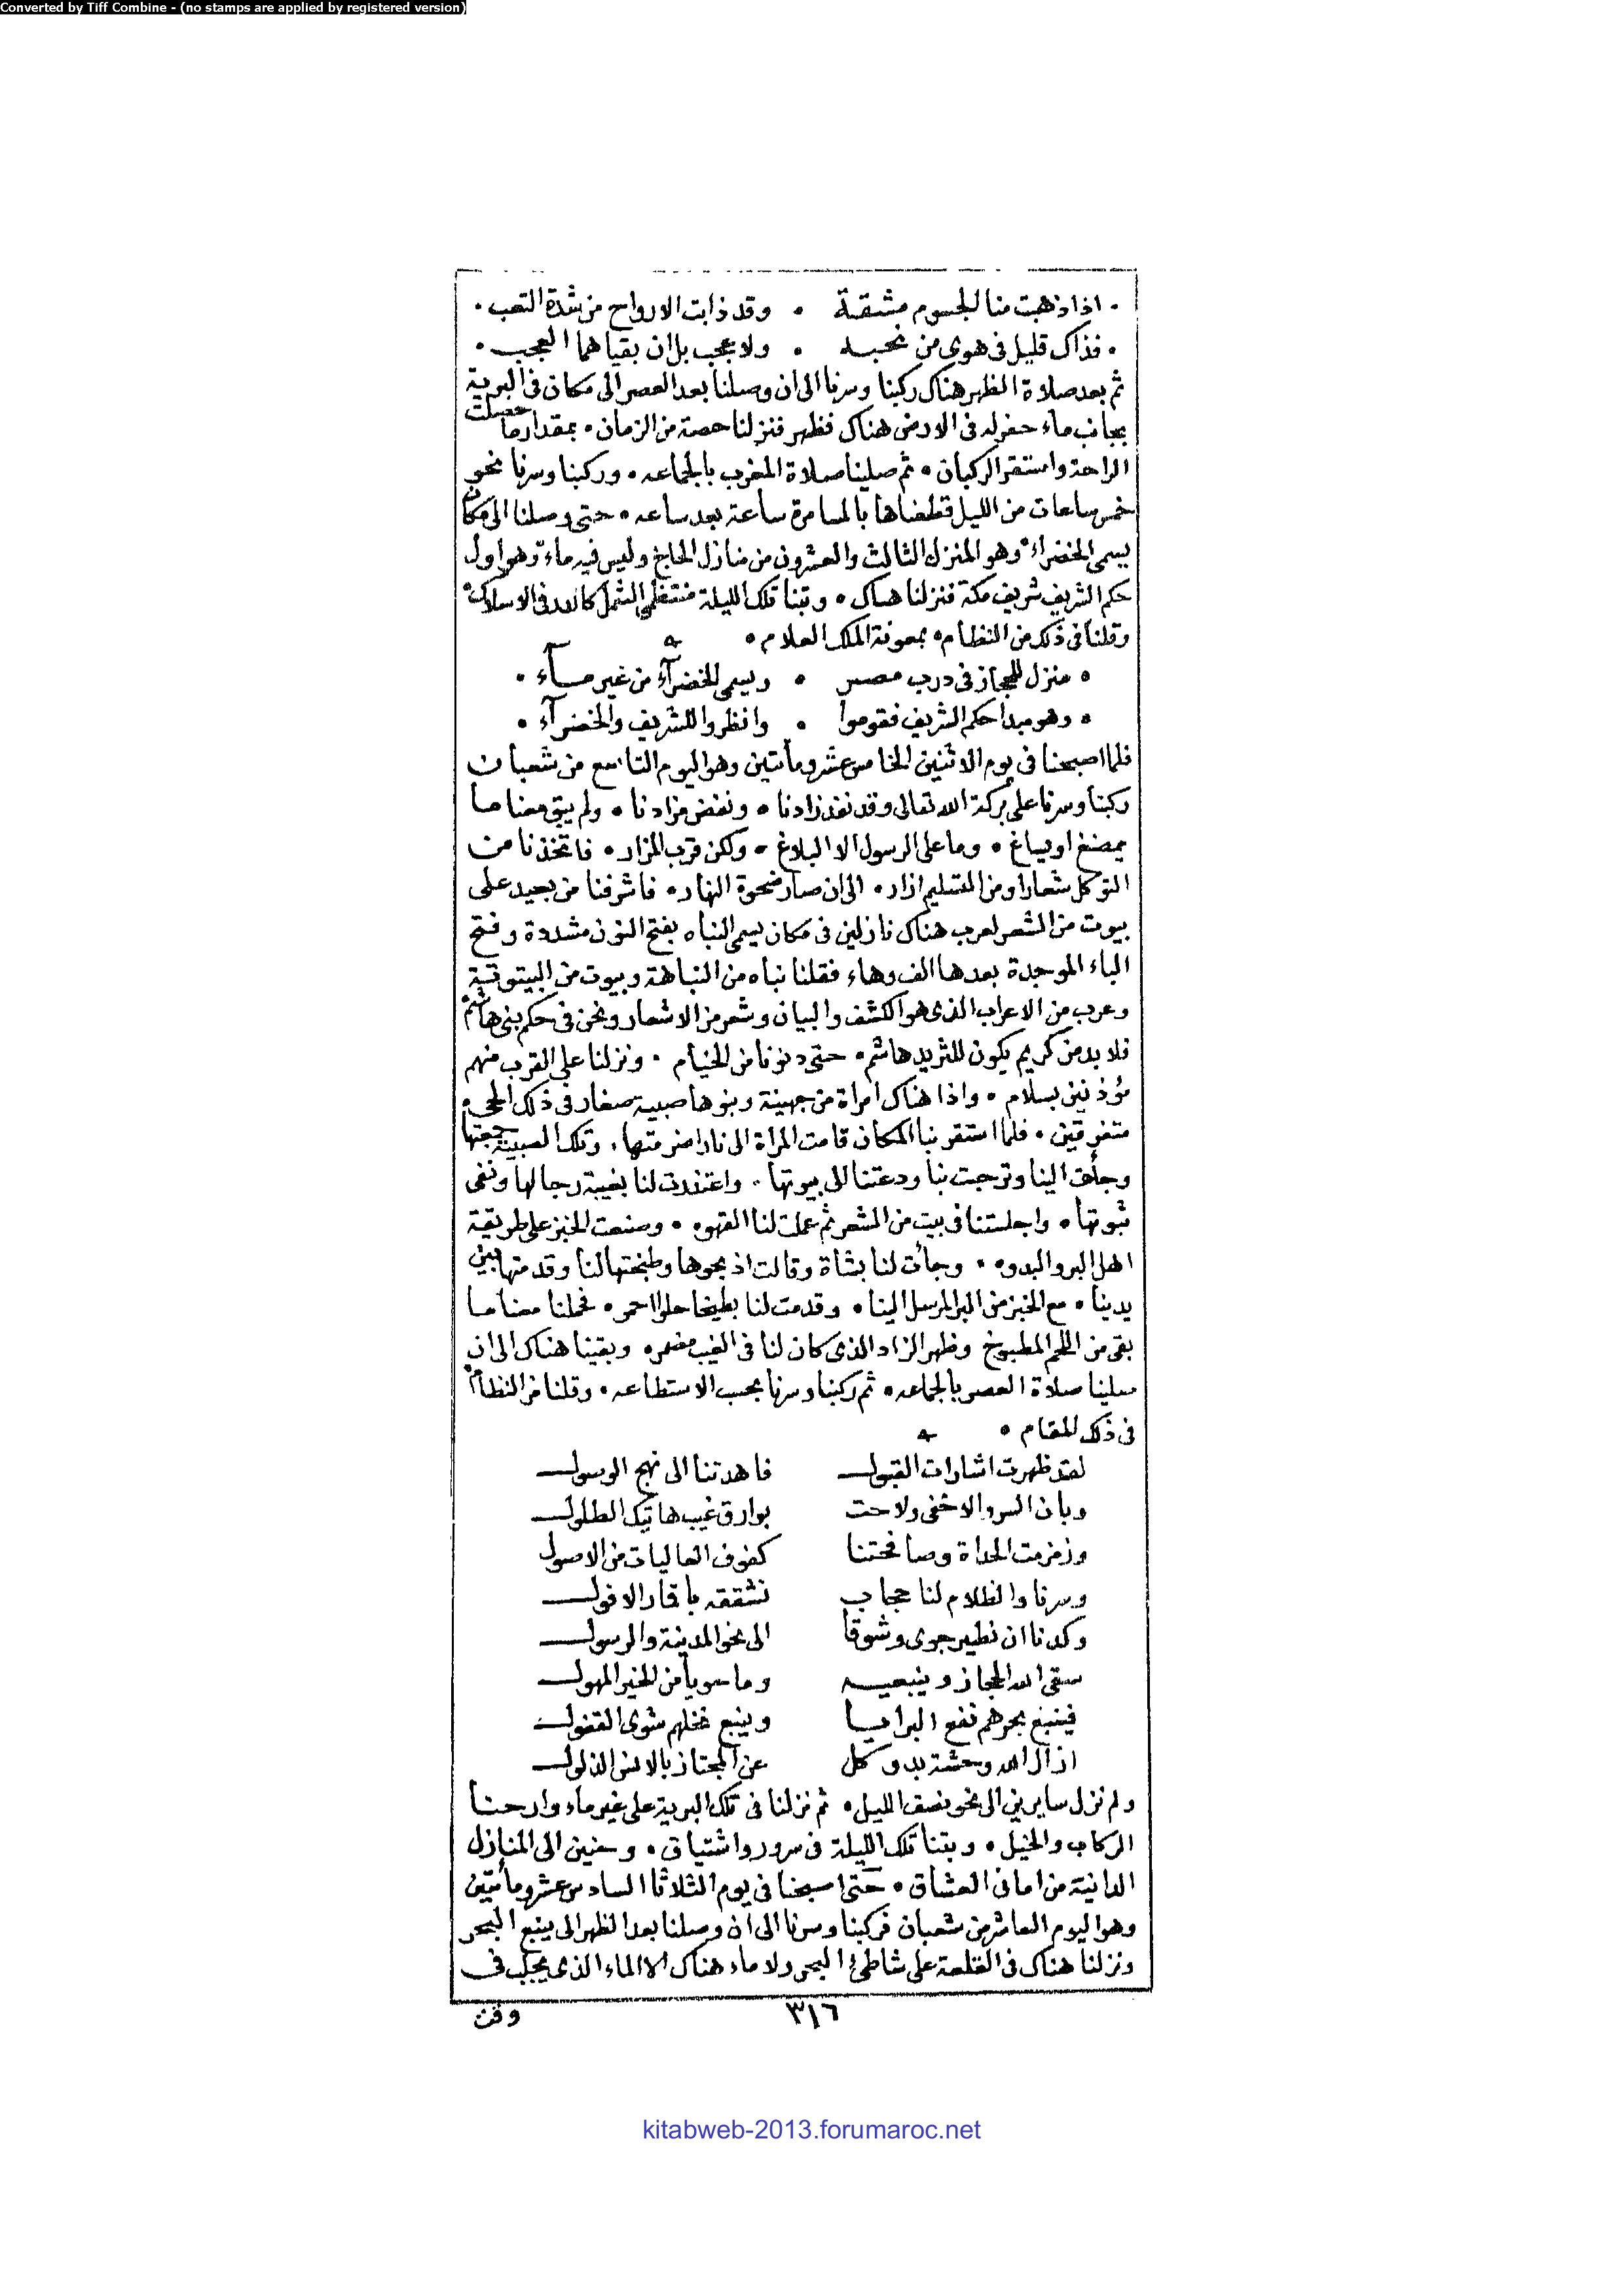 Converted by Tiff Combine - (no stamps are applied by registered version)
• اذا ذهبت منا الجسوم مشقة • وقد ذابت الارواح من شدة التعب •
• فذاك قليل فى هوى من نحبه • ولا عجب بل ان بقياهما العجب •
ثم بعد صلاة الظهر هناك ركبنا وسرنا الى ان وصلنا بعد العصر الى مكان فى البرية
بجانب ماء حفر له فى الارض هناك فظهر فنزلنا حصة من الزمان • بمقدار ما حصلت
الراحة واستقر الركبان • ثم صلينا صلاة المغرب بالجماعه • وركبنا وسرنا نحو
خمس ساعات من الليل قطعناها بالمسامرة ساعة بعد ساعه • حتى وصلنا الى مكان
يسمى الخضراء • وهو المنزل الثالث والعشرون من منازل الحاج وليس فيه ماء وهو اول
حكم الشريف شريف مكة فنزلنا هناك • وبتنا تلك الليلة منتظمى الشمل كالدر فى الاسلاك •
وقلنا فى ذلك من النظام • بمعونة الملك العلام •
• منزل للحجاز فى درب مصر • ويسمى الخضرآء من غير مآء •
• وهو مبدا حكم الشريف فقوموا • وانظروا للشريف والخضرآء •
فلما اصبحنا فى يوم الاثنين الخامس عشر ومأتين وهو اليوم التاسع من شعبان
ركبنا وسرنا على بركة الله تعالى وقد نفد زادنا • ونفض مزادنا • ولم يبق معنا ما
يمضغ او يساغ • وما على الرسول الا البلاغ • ولكن قرب المزار • فاتخذنا من
التوكل شعارا ومن التسليم ازار • الى ان صار ضحوة النهار • فاشرفنا من بعيد على
بيوت من الشعر لعرب هناك نازلين فى مكان يسمى النباه بفتح النون مشددة وفتح
الباء الموحدة بعدها الف وهاء فقلنا نباه من النباهة وبيوت من البيتوتية
وعرب من الاعراب الذى هو الكشف والبيان وشعر من الاشعار ونحن فى حكم بنى هاشم •
فلا بد من كريم يكون للثريد هاشم • حتى دنونا من الخيام • ونزلنا على القرب منهم
مؤذنين بسلام • واذا هناك امراة من جهينة وبنوها صبية صغار فى ذلك الحى •
متفرقين • فلما استقر بنا المكان قامت المرأة الى نار اضرمتها • وتلك الصبية جمعتها
وجأت الينا وترحبت بنا ودعتنا الى بيوتها • واعتذرت لنا بغيبة رجالها ونفى
ثبوتها • واجلستنا فى بيت من الشعر ثم عملت لنا القهوه • وصنعت الخبز على طريقة
اهل البر والبدوه • وجأت لنا بشاة وقالت اذبحوها وطبختها لنا وقدمتها بين
يدينا • مع الخبز من البر المرسل الينا • وقدمت لنا بطيخا حلوا احمر • فحملنا معنا ما
بقى من اللحم المطبوخ وظهر الزاد الذى كان لنا فى الغيب مضمر • وبقينا هناك الى ان
صلينا صلاة العصر بالجماعه • ثم ركبنا وسرنا بحسب الاستطاعه • وقلنا من النظام •
فى ذلك المقام •
لقد ظهرت اشارات القبول فاهدتنا الى نهج الوصول
وبان السر والاخفى ولاحت بوارق غيب هاتيك الطلول
وزمزمت الحداة وصافحتنا كفوف العاليات من الاصول
وسرنا والظلام لنا حجاب نشققه باقمار الافول
وكدنا ان نطير جوى وشوقا الى نحو المدينة والرسول
سقى الله الحجاز وينبعيه وما حويا من الخير المهول
فينبع بحرهم نفع البرايا وينبع نخلهم مثوى القفول
ازال الله وحشة بدو كل عن المجتاز بالانس الذلول
ولم نزل سايرين الى نحو نصف الليل • ثم نزلنا فى تلك البرية على غير ماء وارحنا
الركاب والخيل • وبتنا تلك الليلة فى سرور واشتياق • وحنين الى المنازل
الدانية من امانى العشاق • حتى اصبحنا فى يوم الثلاثا السادس عشر ومأتين
وهو اليوم العاشر من شعبان فركبنا وسرنا الى ان وصلنا بعد الظهر الى ينبع البحر
ونزلنا هناك فى القلعة على شاطئ البحر ولا ماء هناك الا الماء الذى يجلب فى
وقت
٣١٦
kitabweb-2013.forumaroc.net